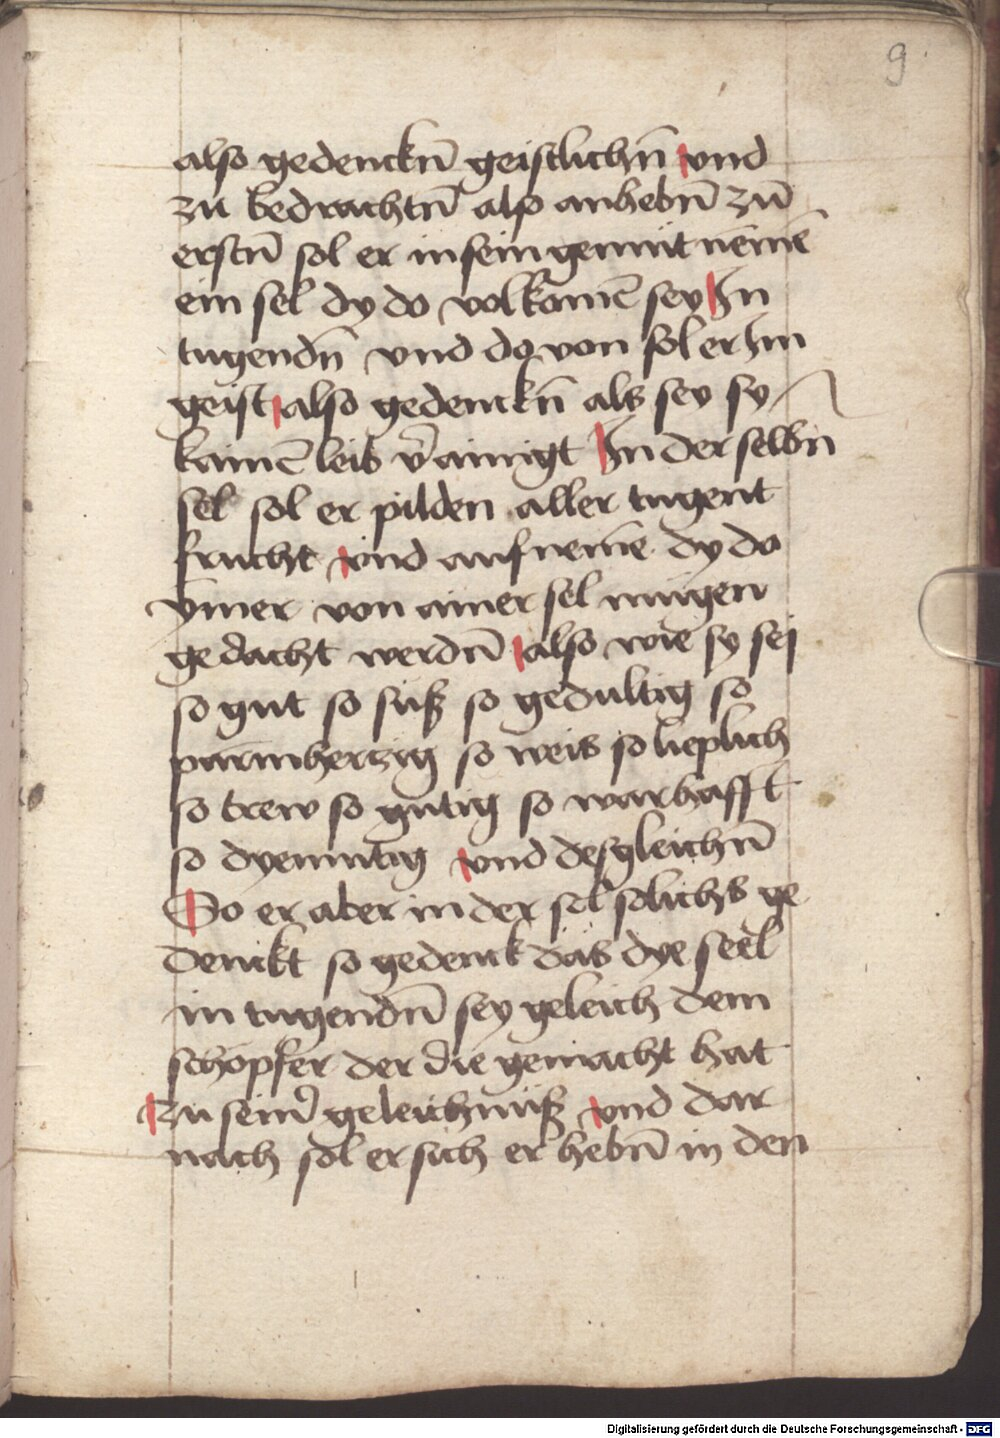 9
also gedenckn̄ geistlichn̄ vnd
zu bedrachtn̄ also anhebn̄ zū
erstn̄ sol er in sein gemüt nemē
ein sel dy do volkomē sey In
tugendn̄ vnd do von sol er Im
geist also gedenckn̄ als sey sy
kainē leib v̄ainigt In der selbn̄
sel sol er pilden aller tugent
frucht vnd aufnemē dy do
ymer von ainer sel mügen
gedacht werdn̄ also wie sy sej
so gut so süß so gedultig so
parmherzig so weis so lieplich
so trew so gutig so warhafft
so dyemutig vnd desgleichn̄
So er aber in der sel solichs ge
denckt so gedenck das dye seel
in tugendn̄ sey geleich dem
schöpfer der die gemacht hat
zu sein̄ geleichnüß vnd dar
nach sol er sich er hebn̄ in den
Digitalisierung gefördert durch die Deutsche Forschungsgemeinschaft - DFG